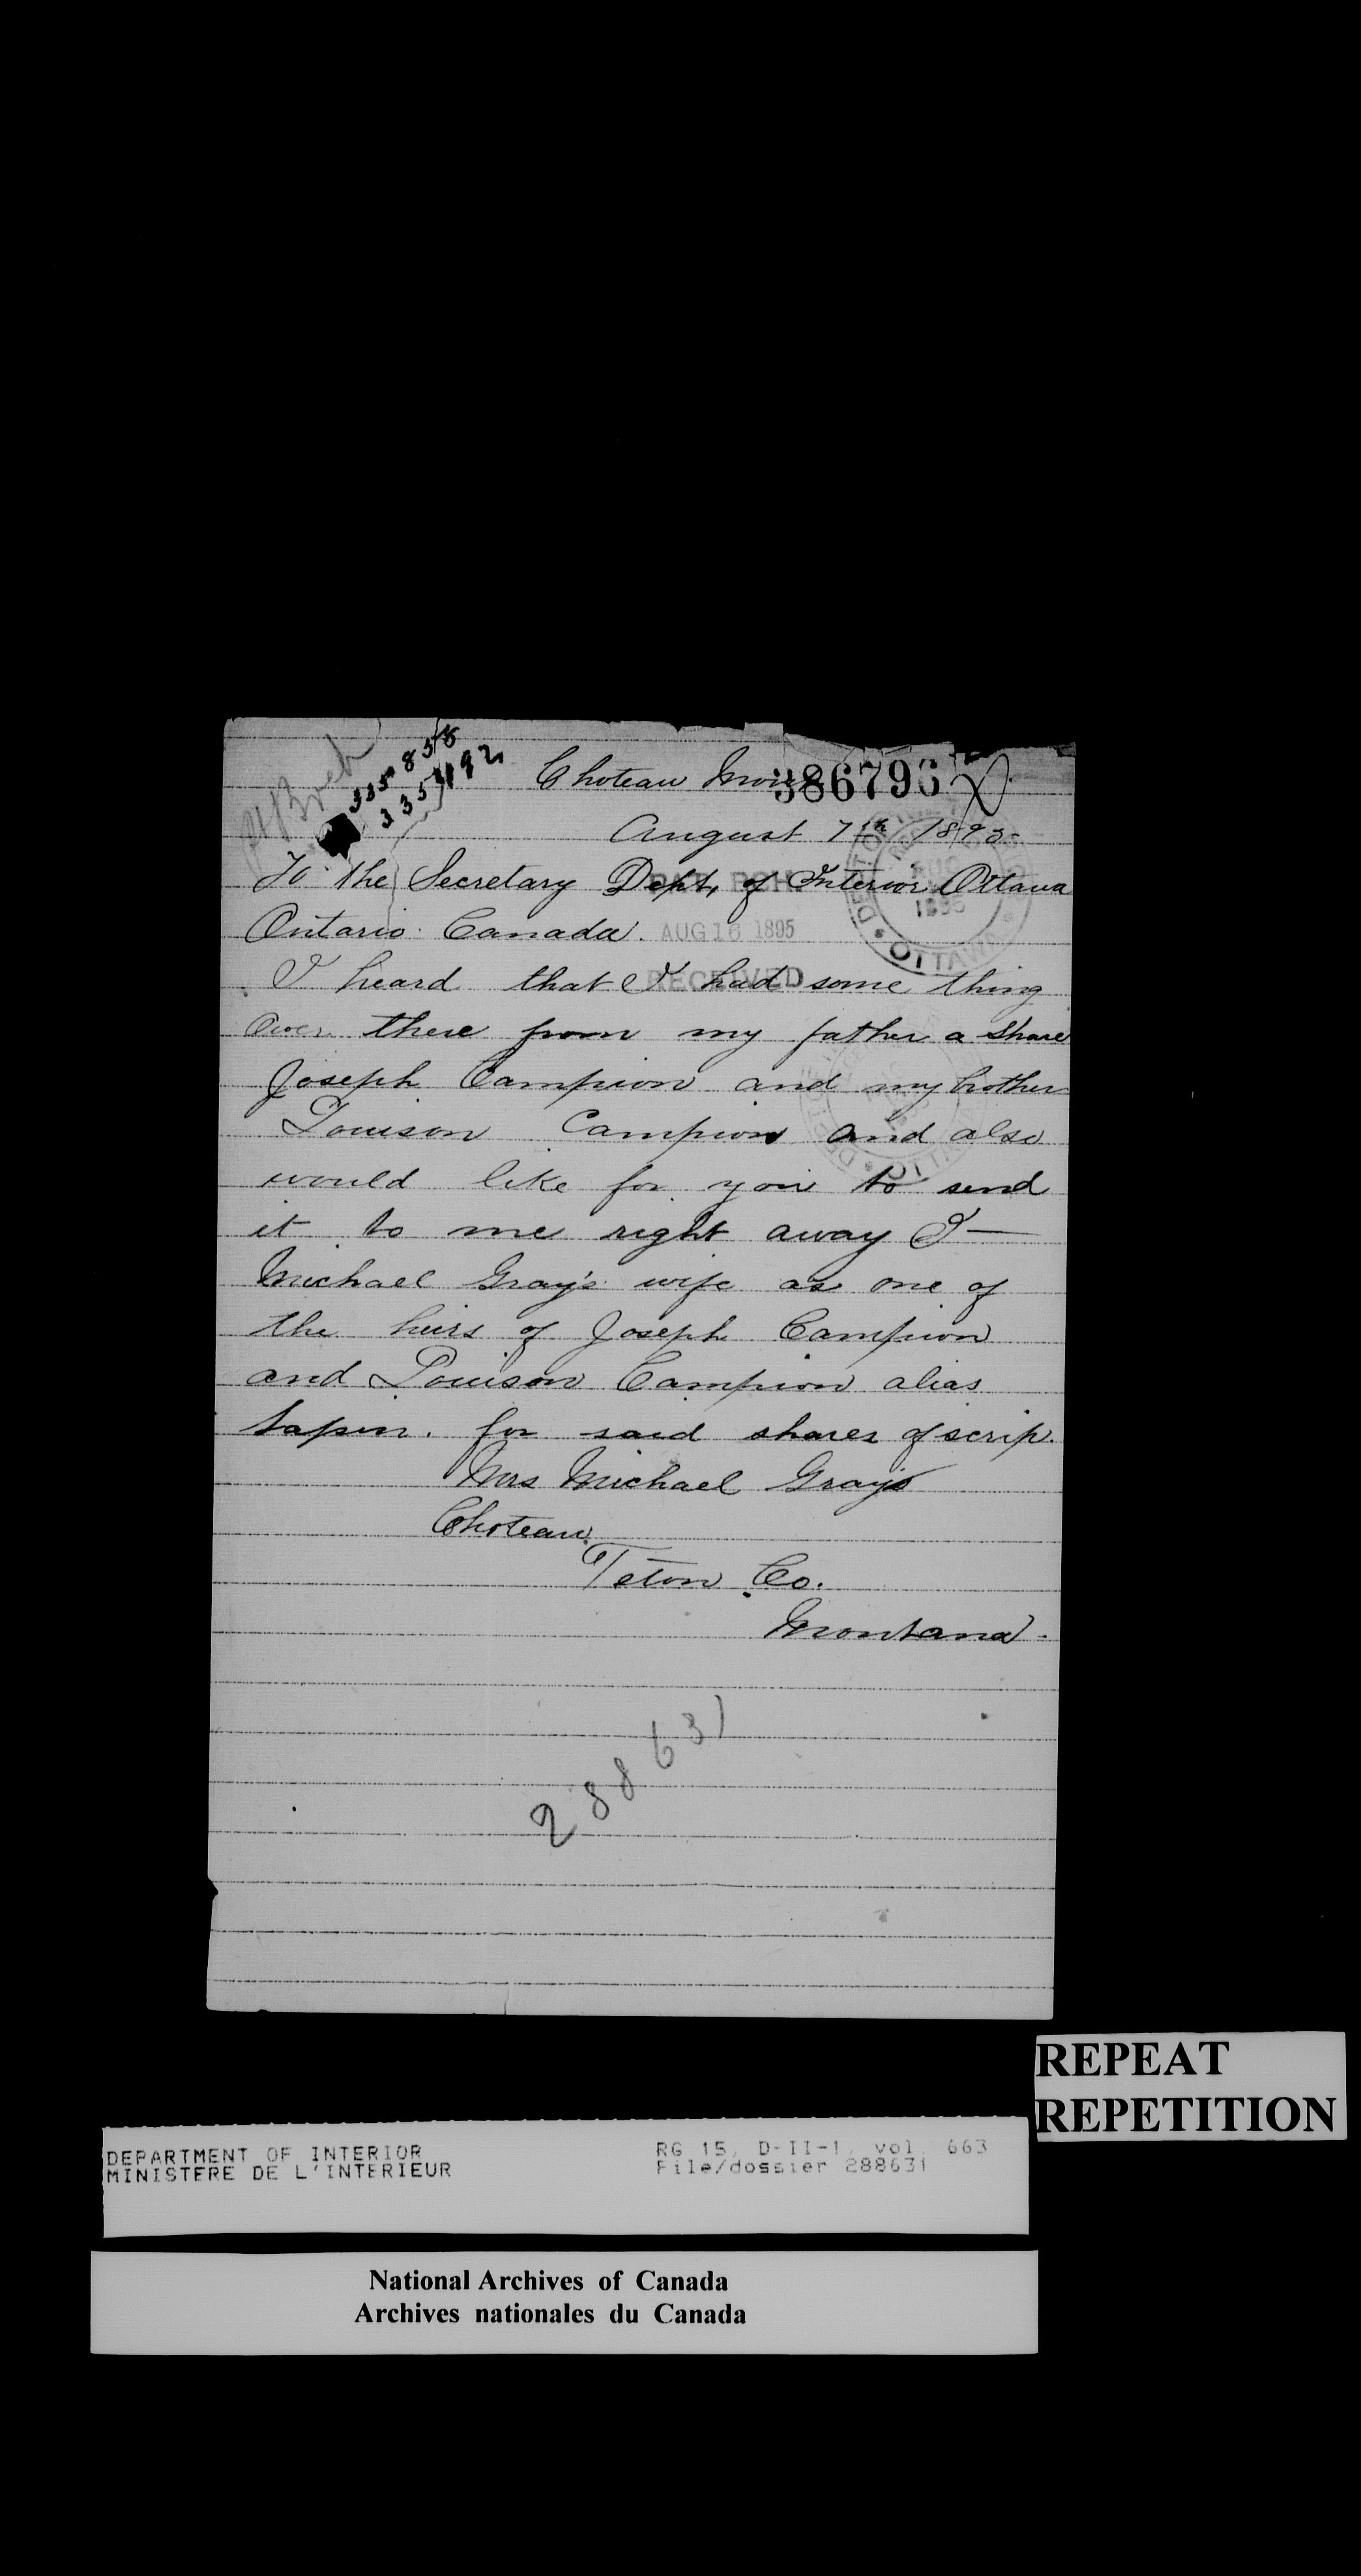 335858
335492
386796
Choteau Mon
August 7th 1895
To the Secretary Dept, of Interior Ottawa
Ontario Canada.
AUG 16 1895
RECEIVED
DEPT OF
1895
OTTAWA
I heard that I had some thing
over there from my father a share
Joseph Campion and my brother
Louison Campion and also
would like for you to send
it to me right away I —
Michael Gray's wife as one of
the heirs of Joseph Campion
and Louison Campion alias
for said shares of scrip.
Mrs Michael Grays
Choteau
Teton Co.
Montana.
288631
REPEAT
REPETITION
DEPARTMENT OF INTERIOR
MINISTERE DE L'INTERIEUR
RG 15, D-II-1, vol. 663
File/dossier 288631
National Archives of Canada
Archives nationales du Canada